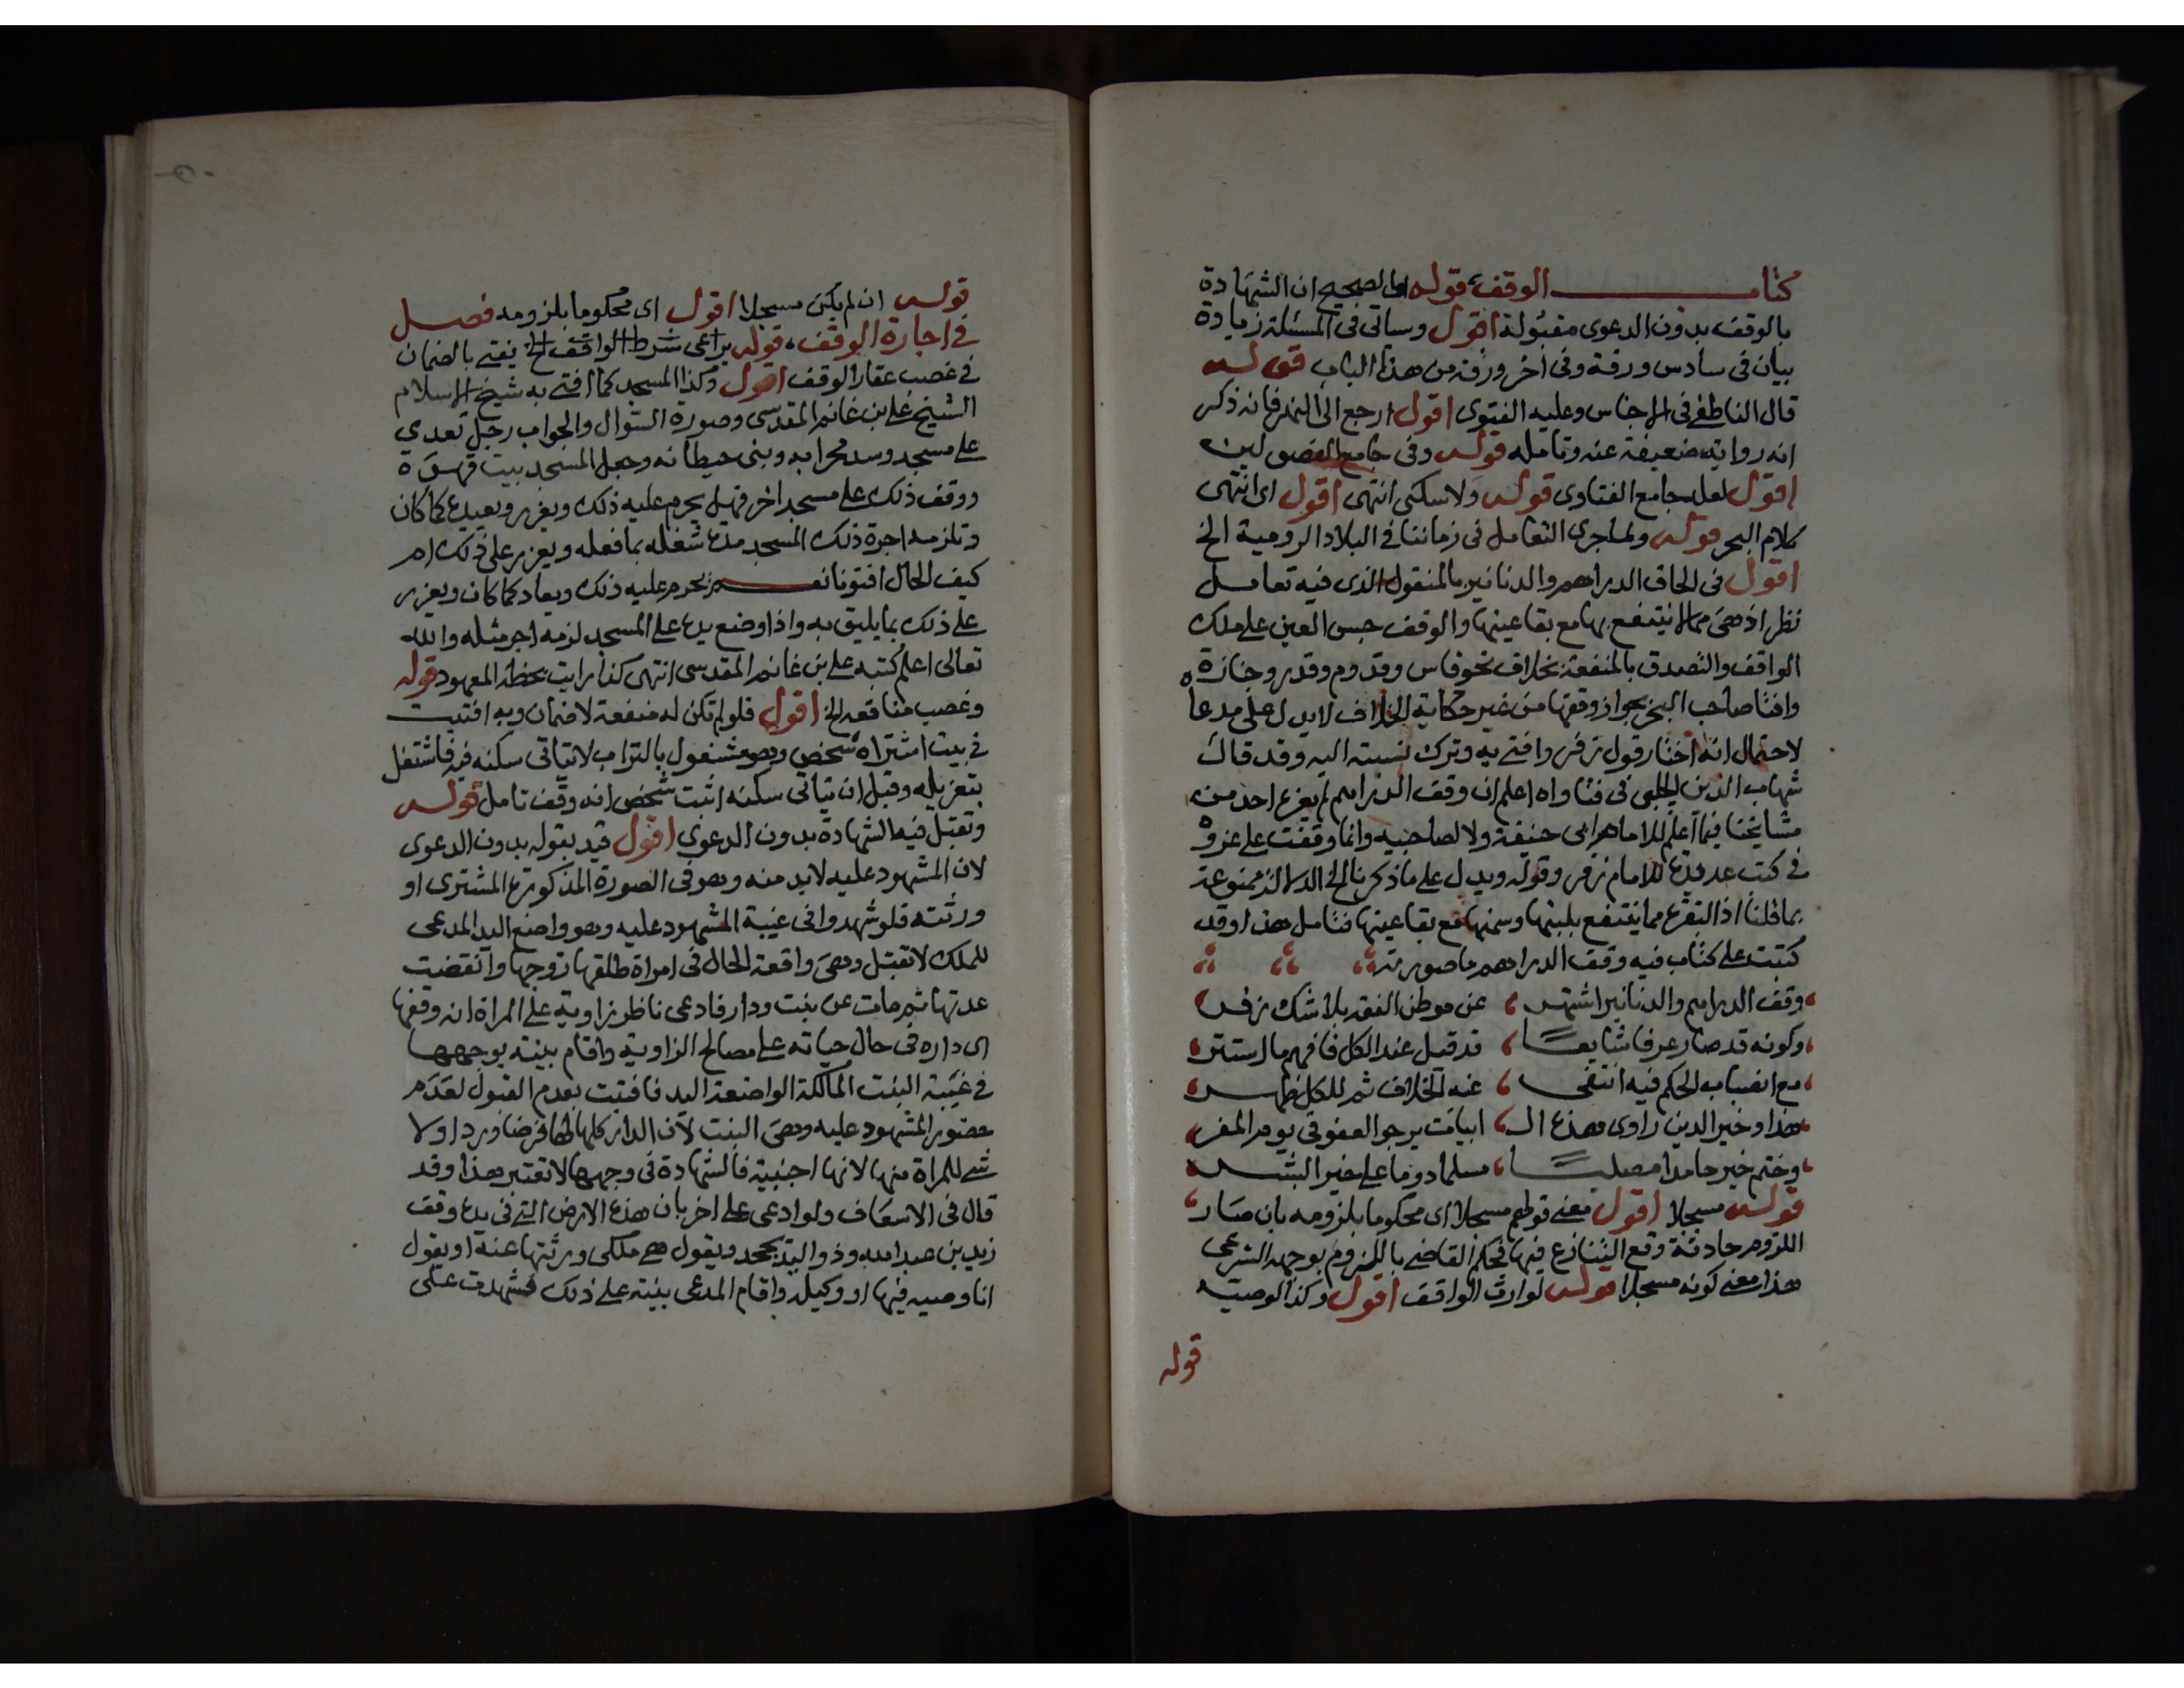 كتاب الوقف قوله الصحيح ان الشهادة
بالوقف بدون الدعوى مقبولة اقول وسياتى فى المسئلة زيادة
بيان فى سادس ورقة وفى اخر ورقة من هذا الباب قوله
قال الناطفى فى الاجناس وعليه الفتوى اقول ارجع الى النهر فانه ذكر
انه رواية ضعيفة عنه وتامله قوله وفى جامع الفصولين
اقول لعله جامع الفتاوى قوله ولا سكنى انتهى اقول اى انتهى
كلام البحر قوله ولما جرى التعامل فى زماننا فى البلاد الرومية الخ
اقول فى الحاق الدراهم والدنانير بالمنقول الذى فيه تعامل
نظر اذ هى مما لا ينتفع بها مع بقا عينها والوقف حبس العين على ملك
الواقف والتصدق بالمنفعة بخلاف نحو فاس وقدوم وقدر وجنازة
وافتا صاحب البحر بجواز وقفها من غير حكاية الخلاف لا يدل على مدعاه
لاحتمال انه اختار قول زفر وافتى به وترك نسبته اليه وقد قال
شهاب الدين الحلبى فى فتاواه اعلم ان وقف الدراهم لم يعزه احد من
مشايخنا فيما اعلم للامام ابى حنيفة ولا لصاحبيه وانما وقفت على عزوه
فى كتب عديدة للامام زفر وقوله ويدل على ما ذكرنا الخ الدلالة ممنوعة
بما قلنا اذ البقرة مما ينتفع بلبنها وسمنها مع بقا عينها فتامل هذا وقد
كتبت على كتاب فيه وقف الدراهم ما صورته
وقف الدراهم والدنانير اشتهر عن موطن الفقه بلا شك زفر
وكونه قد صار عرفا شايعا قد قيل عند الكل فافهم ما استتر
مع انصباب الحكم فيه انتفى عنه الخلاف ثم للكل ظهر
هذا وخير الدين راوى هذه ال ابيات يرجو العفو فى يوم المفر
وختم خير حامدا مصليا مسلما دوما على خير البشر
قوله مسجلا اقول معنى قولهم مسجلا اى محكوما بلزومه بان صار
اللزوم حادثة وقع التنازع فيها فحكم القاضى باللزوم بوجهه الشرعى
هذا معنى كونه مسجلا قوله لوارث الواقف اقول وكذا لوصيه
قوله
قوله ان لم يكن مسجلا اقول اى محكوما بلزومه فصل
فى اجارة الوقف قوله يراعى شرط الواقف الخ يفتى بالضمان
فى غصب عقار الوقف اقول وكذا المسجد كما افتى به شيخ الاسلام
الشيخ على بن غانم المقدسى وصورة السؤال والجواب رجل تعدى
على مسجد وسد محرابه وبنى حيطانه وجعل المسجد بيت قهوة
ووقف ذلك على مسجد اخر فهل يحرم عليه ذلك ويعزر ويعيده كما كان
وتلزمه اجرة ذلك المسجد مدة شغله بما فعله ويعزر على ذلك ام
كيف الحال افتونا نعم يحرم عليه ذلك ويعاد كما كان ويعزر
على ذلك بما يليق به واذا وضع يده على المسجد لزمه اجر مثله والله
تعالى اعلم كتبه على بن غانم المقدسى انتهى كذا رايت بخطه المعهود قوله
وغصب منافعه الخ اقول فلو لم تكن له منفعة لا ضمان وبه افتيت
فى بيت اشتراه شخص وهو مشغول بالتراب لا يتاتى سكنه فيه فاشتغل
بتعزيله وقبل ان يتاتى سكنه اثبت شخص انه وقف تامل قوله
وتقبل فيه الشهادة بدون الدعوى اقول قيد بقوله بدون الدعوى
لان المشهود عليه لا بد منه وهو فى الصورة المذكورة المشترى او
ورثته فلو شهدوا فى غيبة المشهود عليه وهو واضع اليد المدعى
للملك لا تقبل وهى واقعة الحال فى امراة طلقها زوجها وانقضت
عدتها ثم مات عن بنت ودار فادعى ناظر زاوية على المراة انه وقفها
اى داره فى حال حياته على مصالح الزاوية واقام بينة بوجهها
فى غيبة البنت المالكة الواضعة اليد فافتيت بعدم القبول لعدم
حضور المشهود عليه وهى البنت لان الدار كلها لها فرضا وردا ولا
شى للمراة منها لانها اجنبية فالشهادة فى وجهها لا تعتبر هذا وقد
قال فى الاسعاف ولو ادعى على اخر بان هذه الارض التى فى يده وقف
زيد بن عبد الله وذو اليد يجحد ويقول هى ملكى ورثتها عنه او يقول
انا وصيه فيها او وكيله واقام المدعى بينة على ذلك فشهدت على